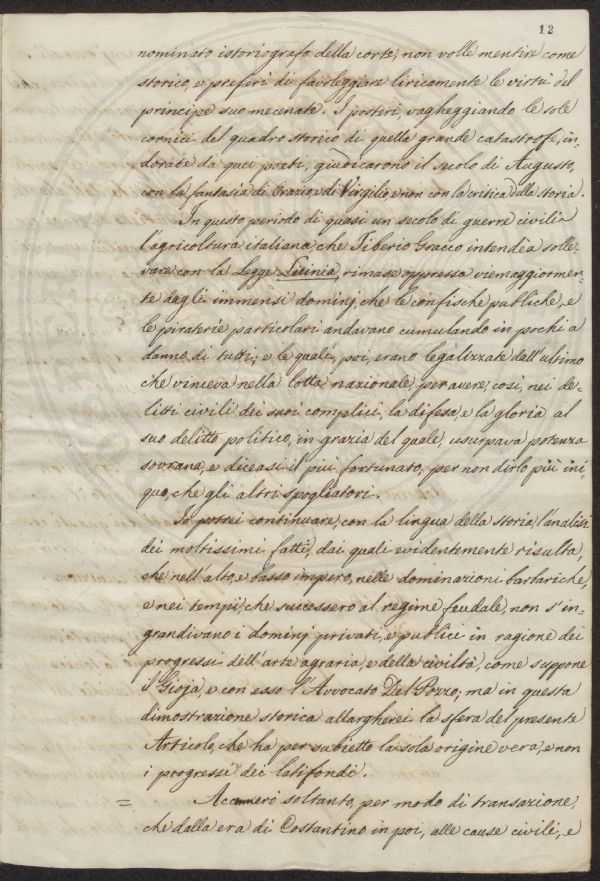 12
nominato istoriografo della corte, non volle mentire come
storico, e preferì di favoleggiare liricamente le virtù del
principe suo mecenate. I posteri, vagheggiando le sole
cornici del quadro storico di quella grande catastrofe, in-
dorate da quei poeti, giudicarono il secolo di Augusto,
con la fantasia di Orazio, e di Virgilio, e non con la critica della storia.
In questo periodo di quasi un secolo di guerre civili a
l'agricoltura italiana, che Tiberio Gracco intendea solle-
vare con la Legge Licinia, rimase oppressa viemaggiormen-
te dagli immensi dominj, che le confische publiche, e
le piraterie particolari andavano cumulando in pochi a
danno di tutti; e le quali, poi, erano legalizzate dall'ultimo
che vinceva nella lotta nazionale, per avere, così, nei de-
litti civili dei suoi complici, la difesa, e la gloria al
suo delitto politico, in grazia del quale, usurpava potenza
sovrana, e diceasi il più fortunato, per non dirlo più ini-
quo, che gli altri spogliatori.
Io potrei continuare, con la lingua della storia, l'analisi
dei moltissimi fatti, dai quali evidentemente risulta,
che nell'alto, e basso impero, nelle dominazioni barbariche,
e nei tempi, che successero al regime feudale, non s'in-
grandivano i dominj privati, e publici in ragione dei
progressi dell'arte agraria, e della civiltà, come suppone
il Gioja, e con esso l'Avvocato Del Pozzo; ma in questa
dimostrazione storica allargherei la sfera del presente
Articolo, che ha per subietto la sola origine vera, e non
i progressi dei latifondi.
= Accennerò soltanto, per modo di transazione,
che dalla era di Costantino in poi, alle cause civili, e